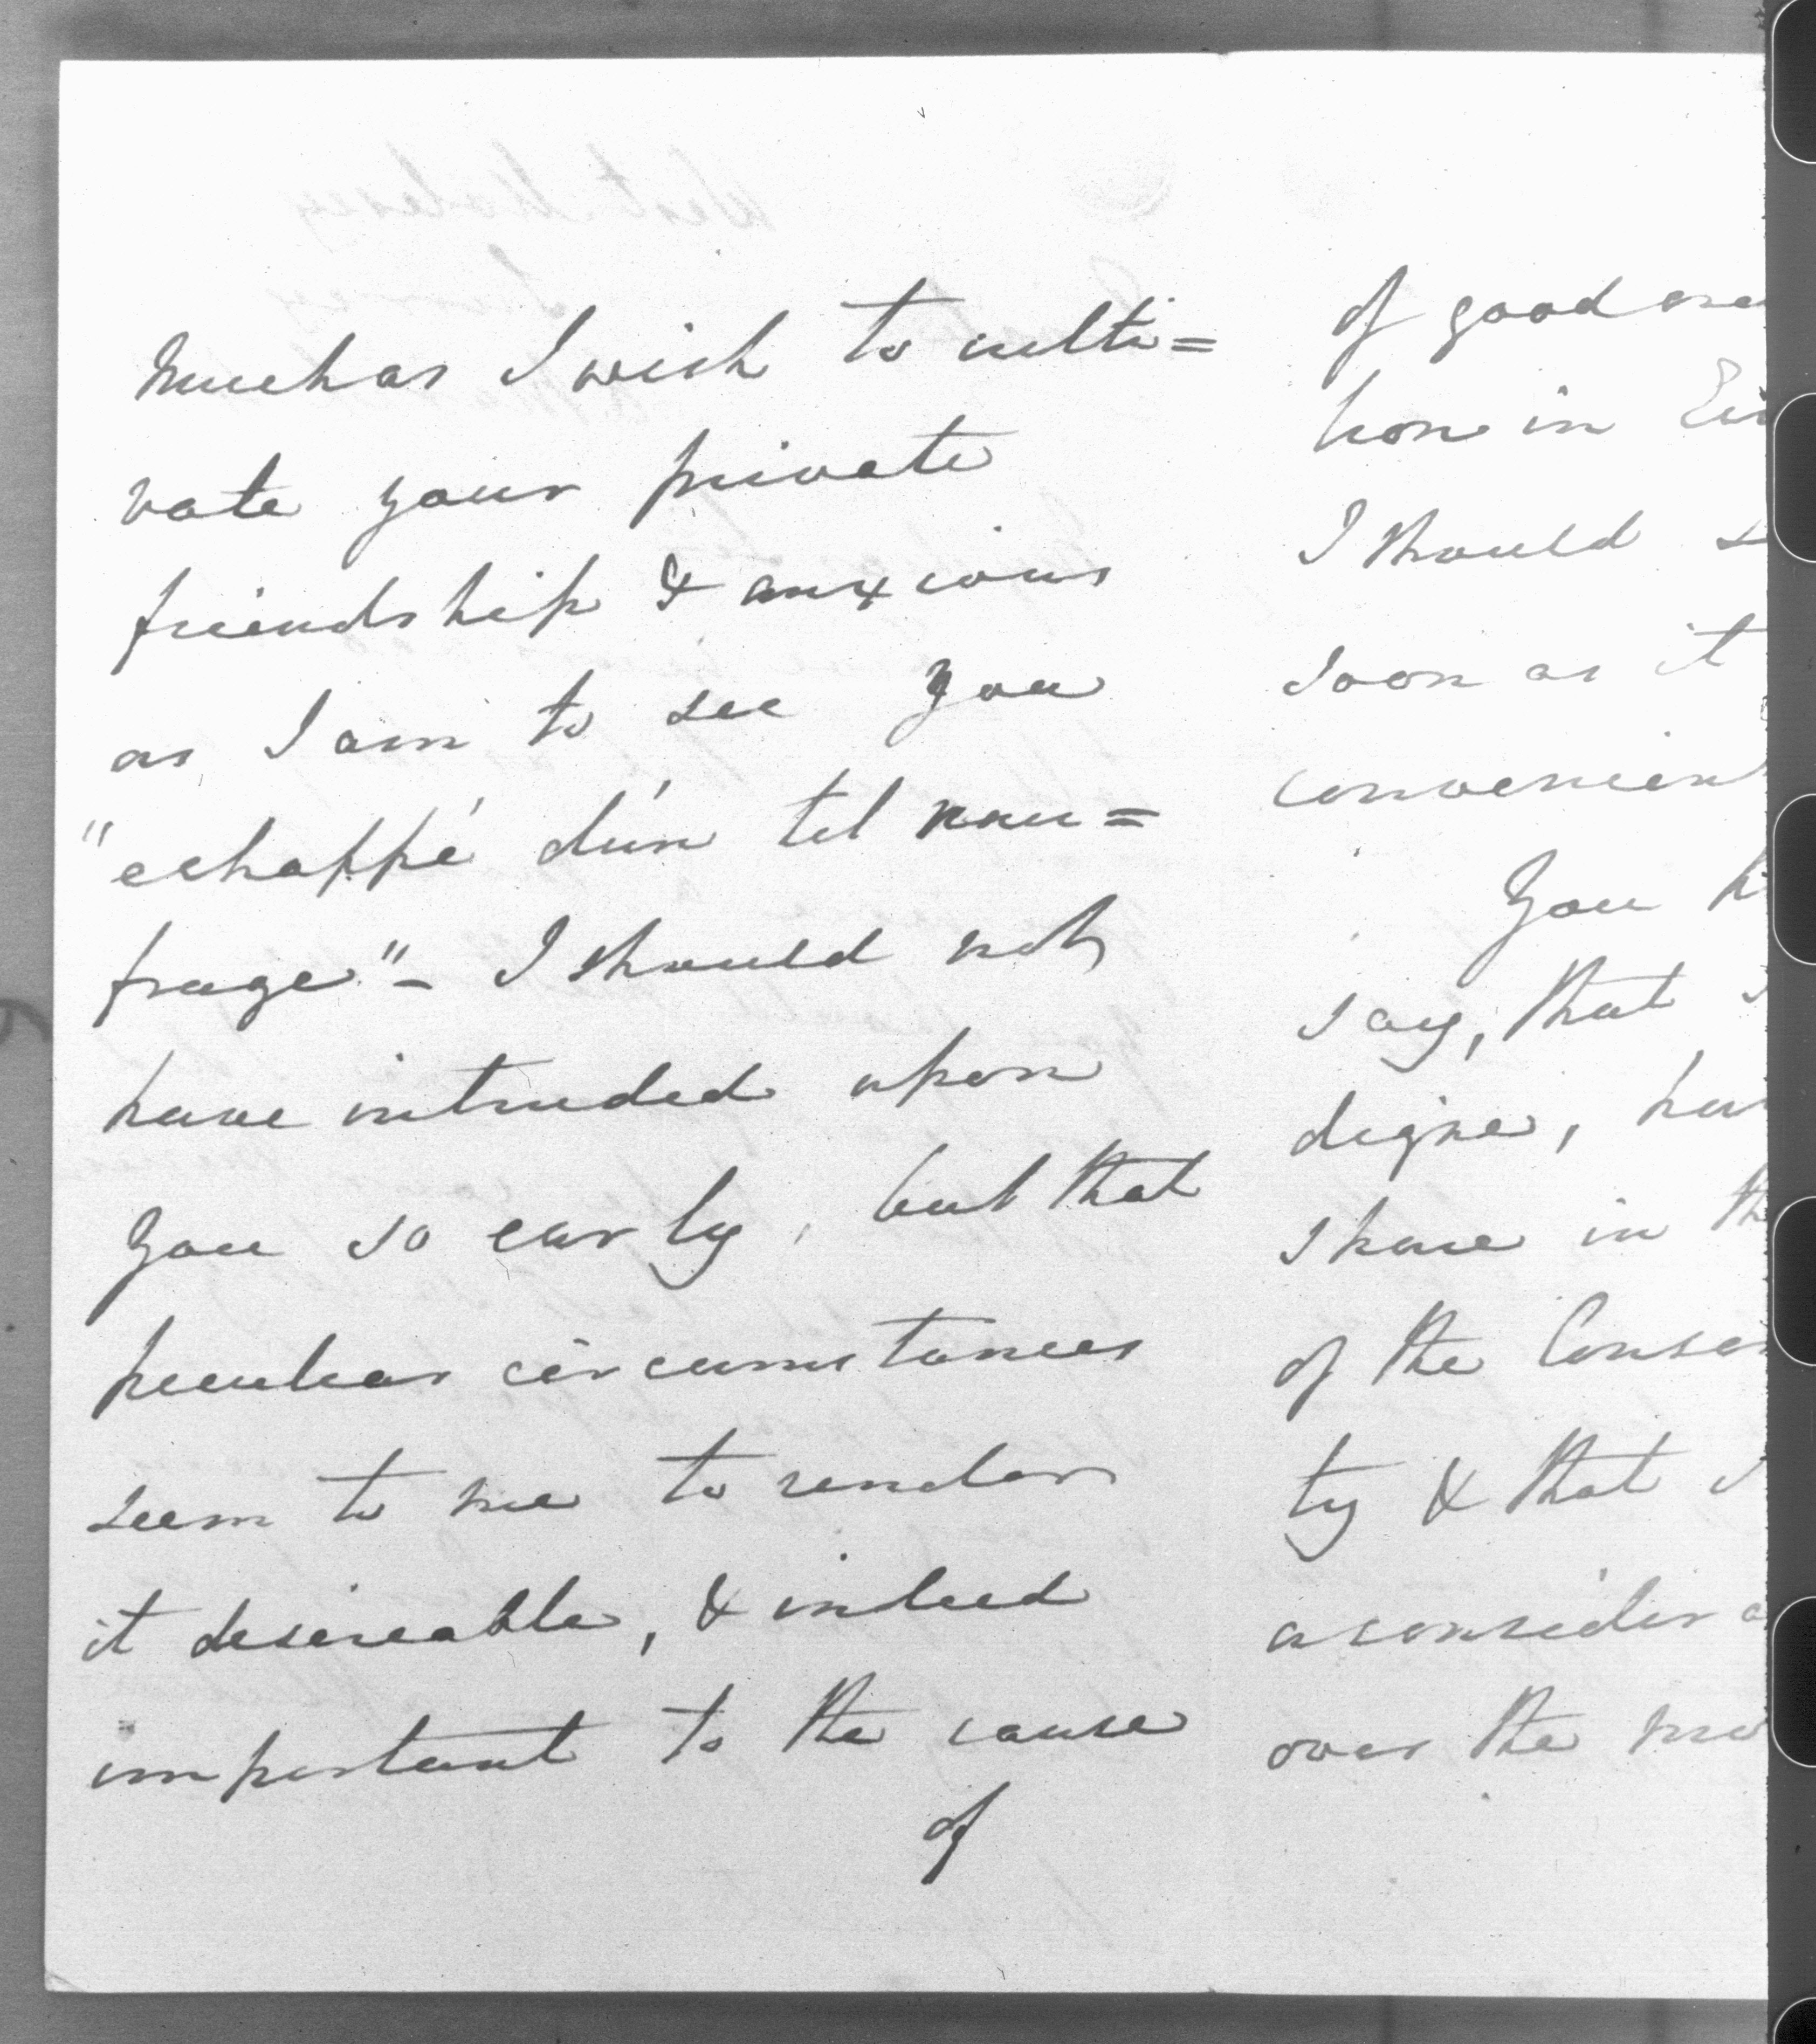 Much as I wish to culti=
vate your private
friendship & anxious
as I am to see you
"echappé d'un tel nau=
frage" - I should not
have intruded upon
you so early, but that
peculiar circumstances
seem to me to render
it desireable, & indeed
important to the cause
of
of good
tion in
I should
soon as it
convenien
You
say, that
digne,
share in
of the Conser
ty & that
a consider
over the